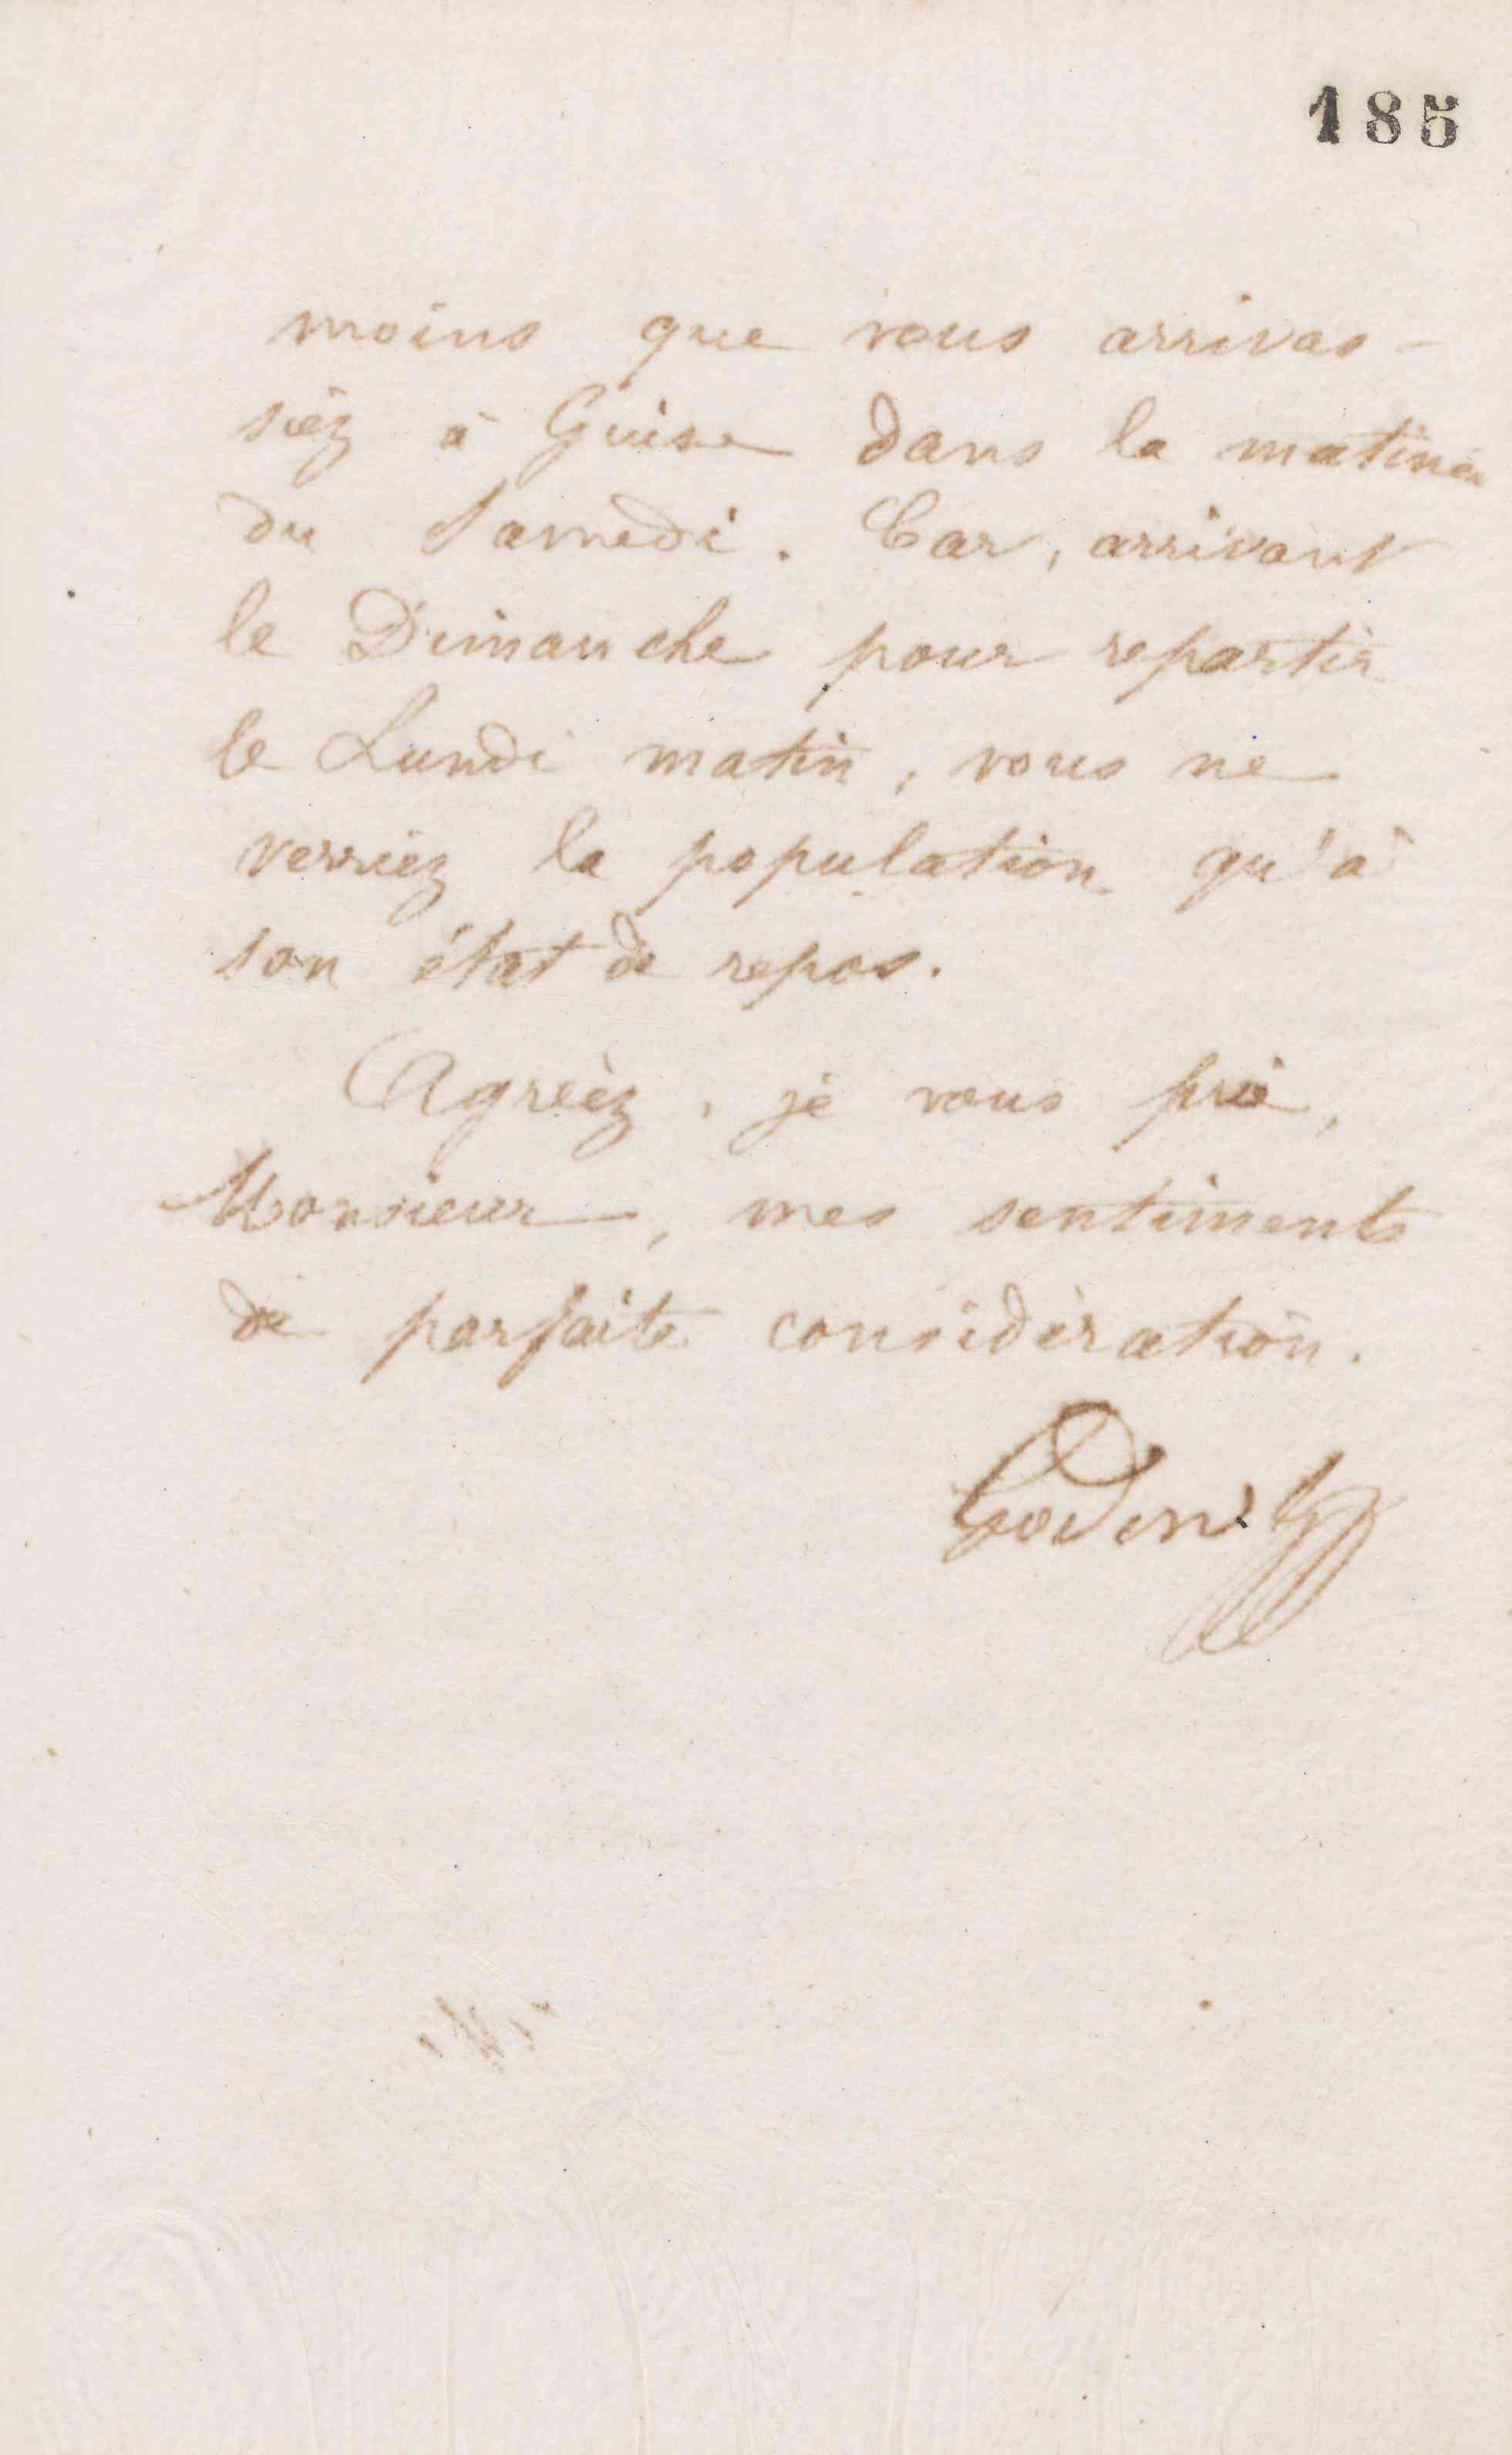 185
moins que vous arrivas-
siez à Guise dans la matinée
du Samedi. Car, arrivant
le Dimanche pour repartir
le Lundi matin, vous ne
verriez la population qu'à
son état de repos.
Agréez, je vous prie,
Monsieur, mes sentiments
de parfaite considération.
Godin